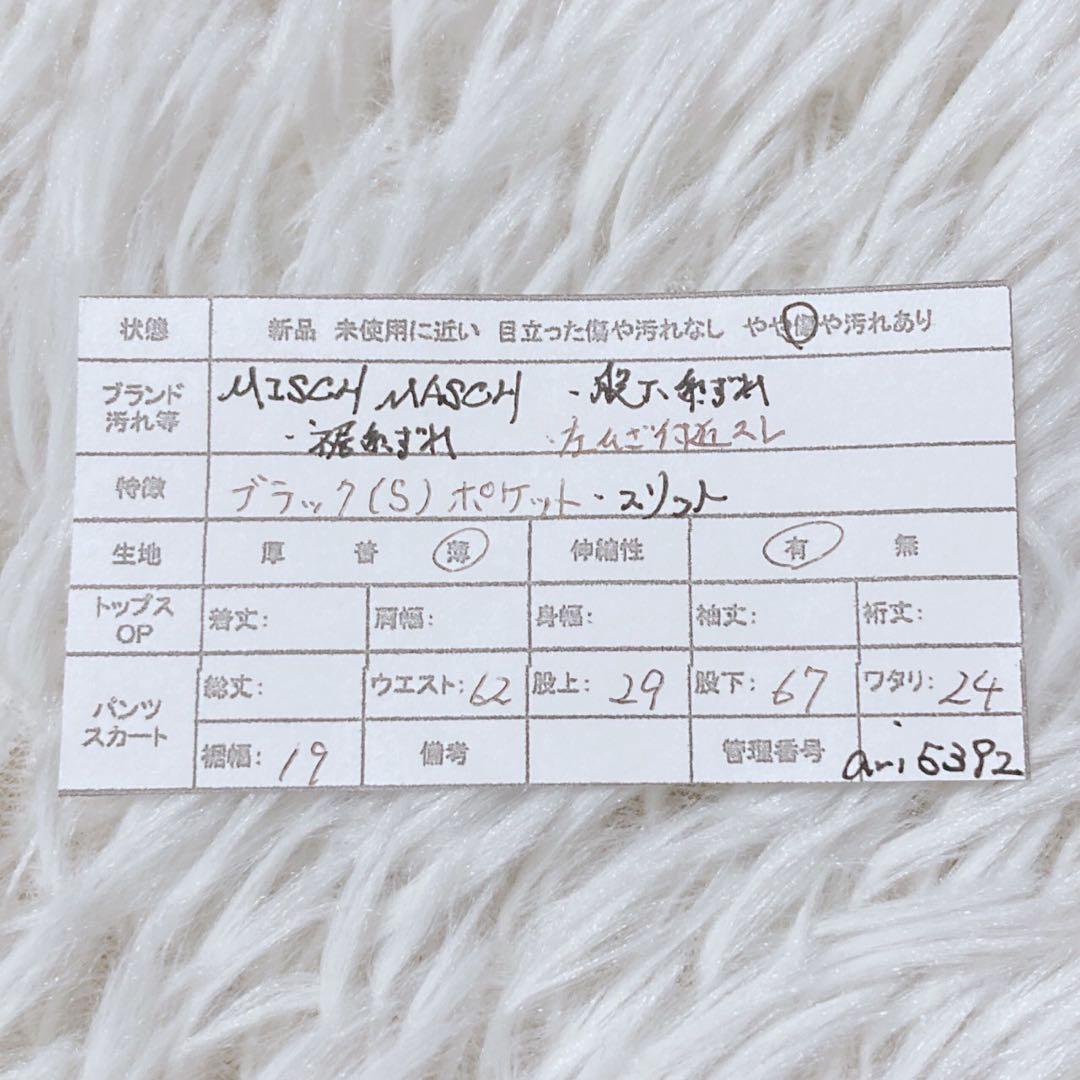 状態 新品 未使用に近い 目立った傷や汚れなし やや傷や汚れあり
ブランド汚れ等 MISCH MASCH ・股下糸ずれ
・裾糸ずれ ・左ひざ付近スレ
特徴 ブラック(S) ポケット・スリット
生地 厚 普 薄 伸縮性 有 無
トップス OP 着丈: 肩幅: 身幅: 袖丈: 裄丈:
パンツ スカート 総丈: ウエスト: 62 股上: 29 股下: 67 ワタリ: 24
裾幅: 19 備考 管理番号 ari5392